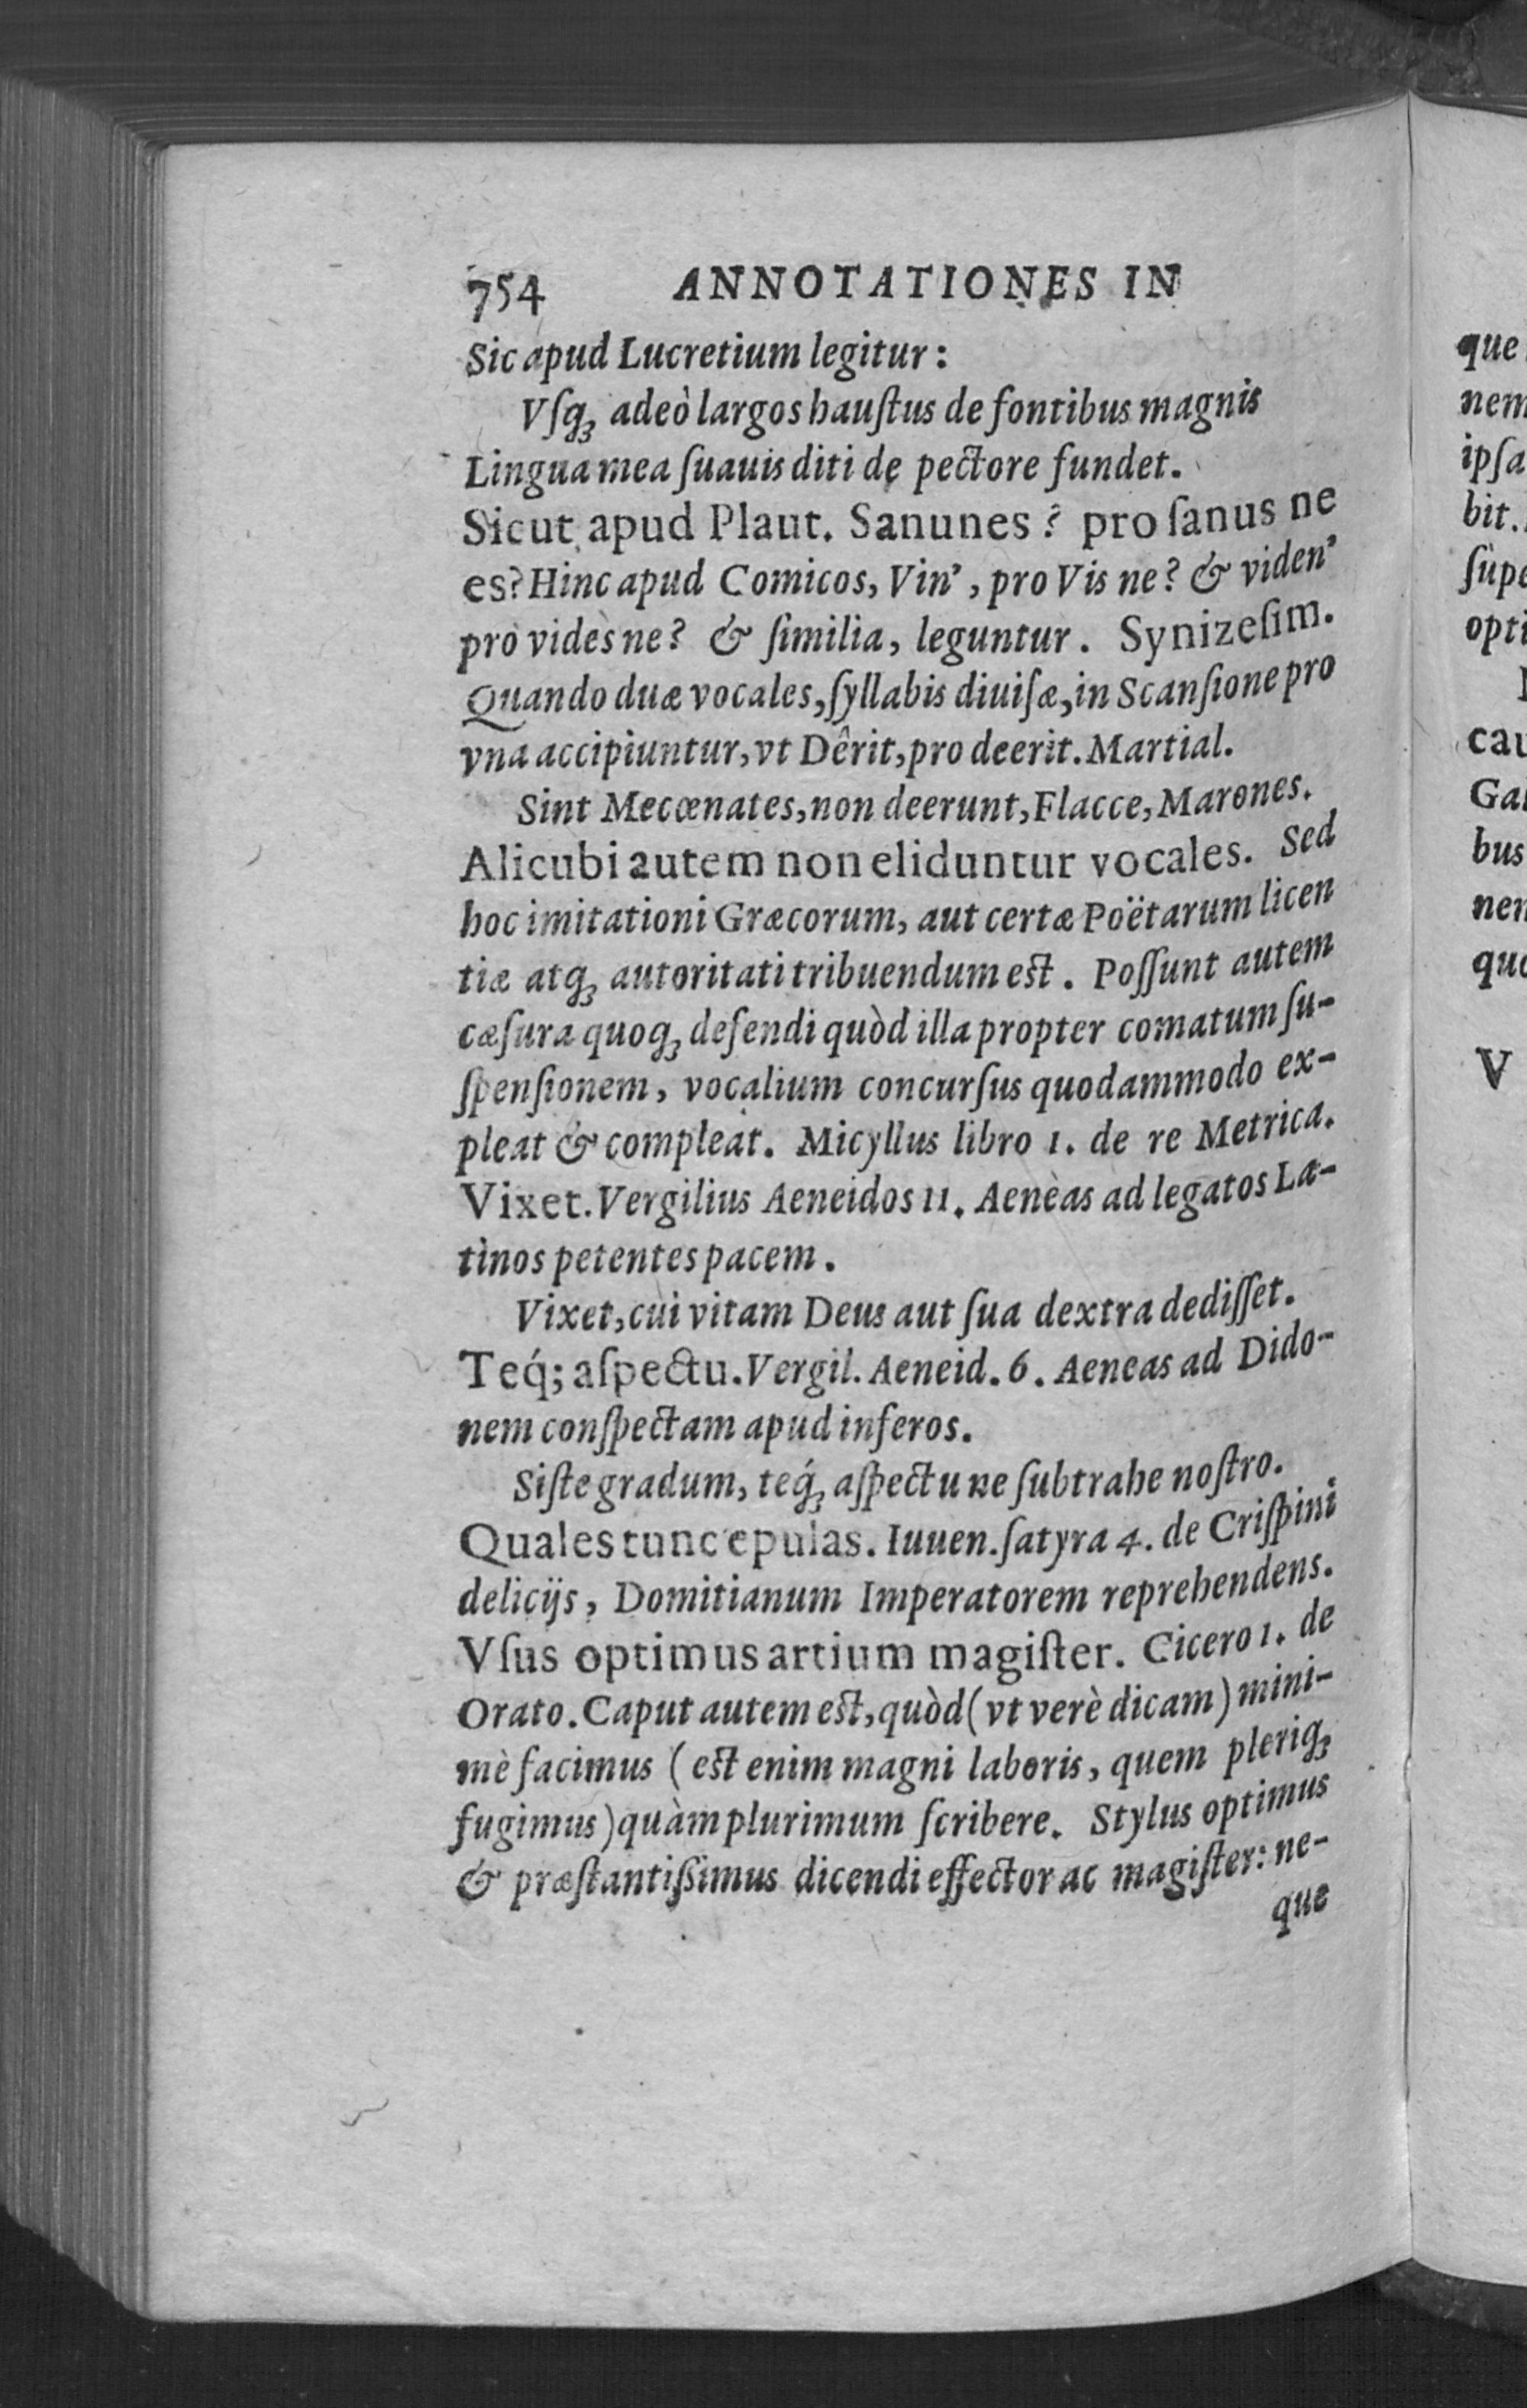 754 ANNOTATIONES IN
Sic apud Lucretium legitur:
Vſqꝫ adeò largos hauſtus de fontibus magnis
Lingua mea ſuauis diti de pectore fundet.
Sicut apud Plaut. Sanunes? pro ſanus ne
es? Hinc apud Comicos, Vin', pro Vis ne? & viden'
pro vides ne? & ſimilia, leguntur. Synizeſim.
Quando duæ vocales, ſyllabis diuiſæ, in Scanſione pro
vna accipiuntur, vt Dêrit, pro deerit. Martial.
Sint Mecœnates, non deerunt, Flacce, Marones.
Alicubi autem non eliduntur vocales. Sed
hoc imitationi Græcorum, aut certæ Poëtarum licen
tiæ atqꝫ autoritati tribuendum est. Poſſunt autem
cæſura quoqꝫ defendi quòd illa propter comatum ſu-
ſpenſionem, vocalium concurſus quodammodo ex-
pleat & compleat. Micyllus libro 1. de re Metrica.
Vixet. Vergilius Aeneidos 11. Aeneas ad legatos La-
tinos petentes pacem.
Vixet, cui vitam Deus aut ſua dextra dediſſet.
Teq́; aſpectu. Vergil. Aeneid. 6. Aeneas ad Dido-
nem conſpectam apud inferos.
Siſte gradum, teq́ꝫ aſpectu ne ſubtrahe noſtro.
Quales tunc epulas. Iuuen. ſatyra 4. de Criſpini
delicijs, Domitianum Imperatorem reprehendens.
Vſus optimus artium magiſter. Cicero 1. de
Orato. Caput autem est, quòd (vt verè dicam) mini-
mè facimus (est enim magni laboris, quem pleriqꝫ
fugimus) quàm plurimum ſcribere. Stylus optimus
& præſtantißimus dicendi effector ac magiſter: ne-
que
que
nem
ipſa
bit.
ſupe
opti
cau
Gal
bus
nen
quo
V